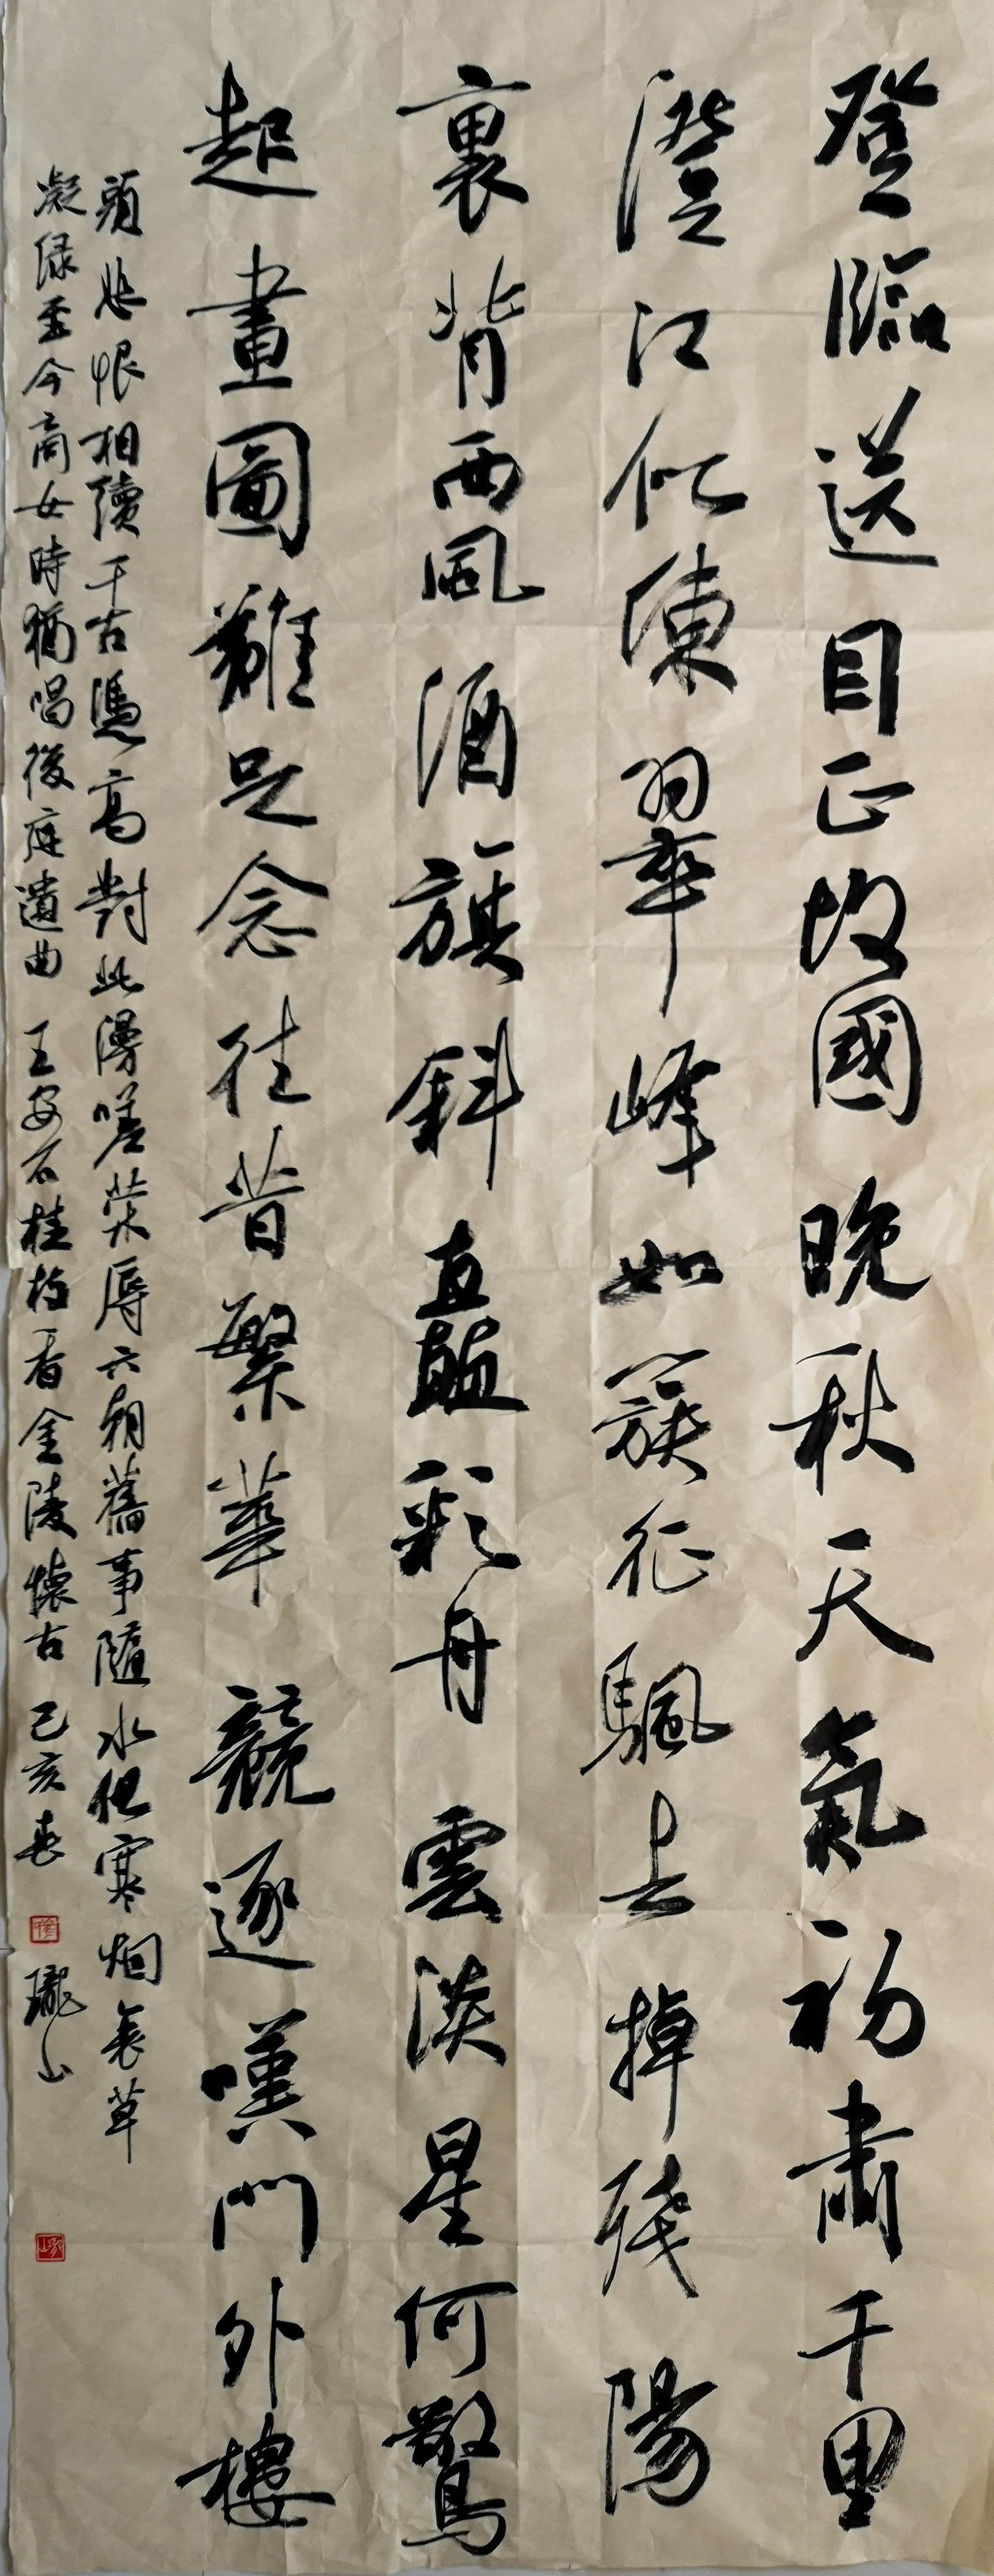 登臨送目正故國晚秋天氣初肅千里
澄江似練翠峰如簇征颿去棹殘陽
裏背西風酒旗斜矗彩舟雲淡星何驚
起畫圖難足念往昔繁華競逐嘆門外樓
頭悲恨相續千古憑高對此漫嗟榮辱六朝舊事隨水但寒烟衰草
凝绿至今商女時猶唱後庭遺曲 王安石桂枝香金陵懷古 己亥春 瓏山